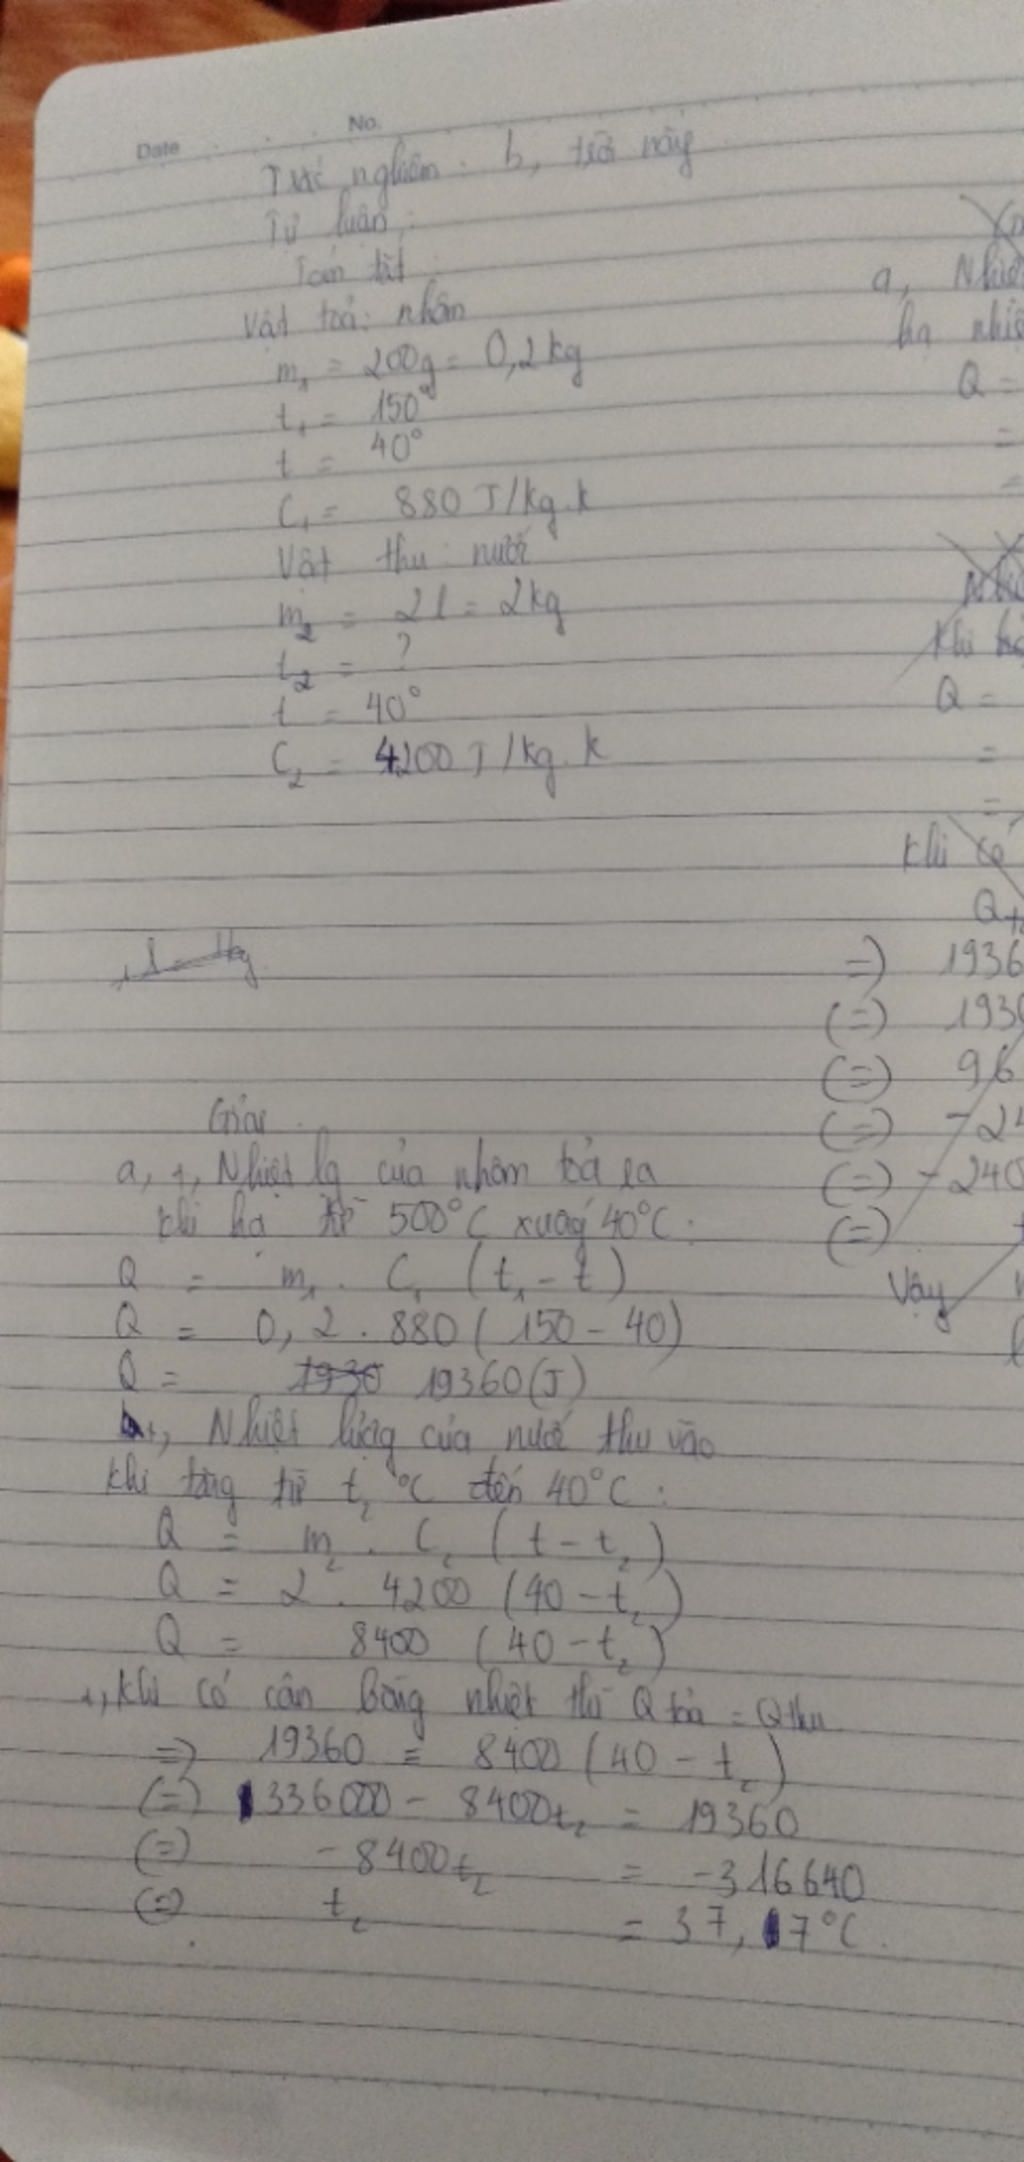 Date No.
Trắc nghiệm: b,
Tự luận:
Tóm tắt
Vật toả: nhôm
m₁ = 200g = 0,2kg
t₁ = 150°
t = 40°
C₁ = 880 J/kg.k
Vật thu: nước
m₂ = 2l = 2kg
t₂ = ?
t = 40°
C₂ = 4200 J/kg.k
Giải
a, +, Nhiệt lg của nhôm toả ra
khi hạ từ 500°C xuống 40°C:
Q = m₁ . C₁ (t₁ - t)
Q = 0,2 . 880 (150 - 40)
Q = 1930 19360 (J)
+, Nhiệt lượng của nước thu vào
khi tăng từ t₂ °C đến 40°C:
Q = m₂ . C₂ (t - t₂)
Q = 2 . 4200 (40 - t₂)
Q = 8400 (40 - t₂)
+, Khi có cân bằng nhiệt thì Q toả = Q thu
=> 19360 = 8400 (40 - t₂)
(=) 336000 - 8400t₂ = 19360
(=) -8400t₂ = -316640
(=) t₂ = 37,7°C.
a, Nhiệ
hạ nhiệ
Q =
=
=
Khi
Q =
=
=
Khi có
Q
=) 1936
(=) 193
(=) 96
(=) -24
(=) -240
(=)
Vậy